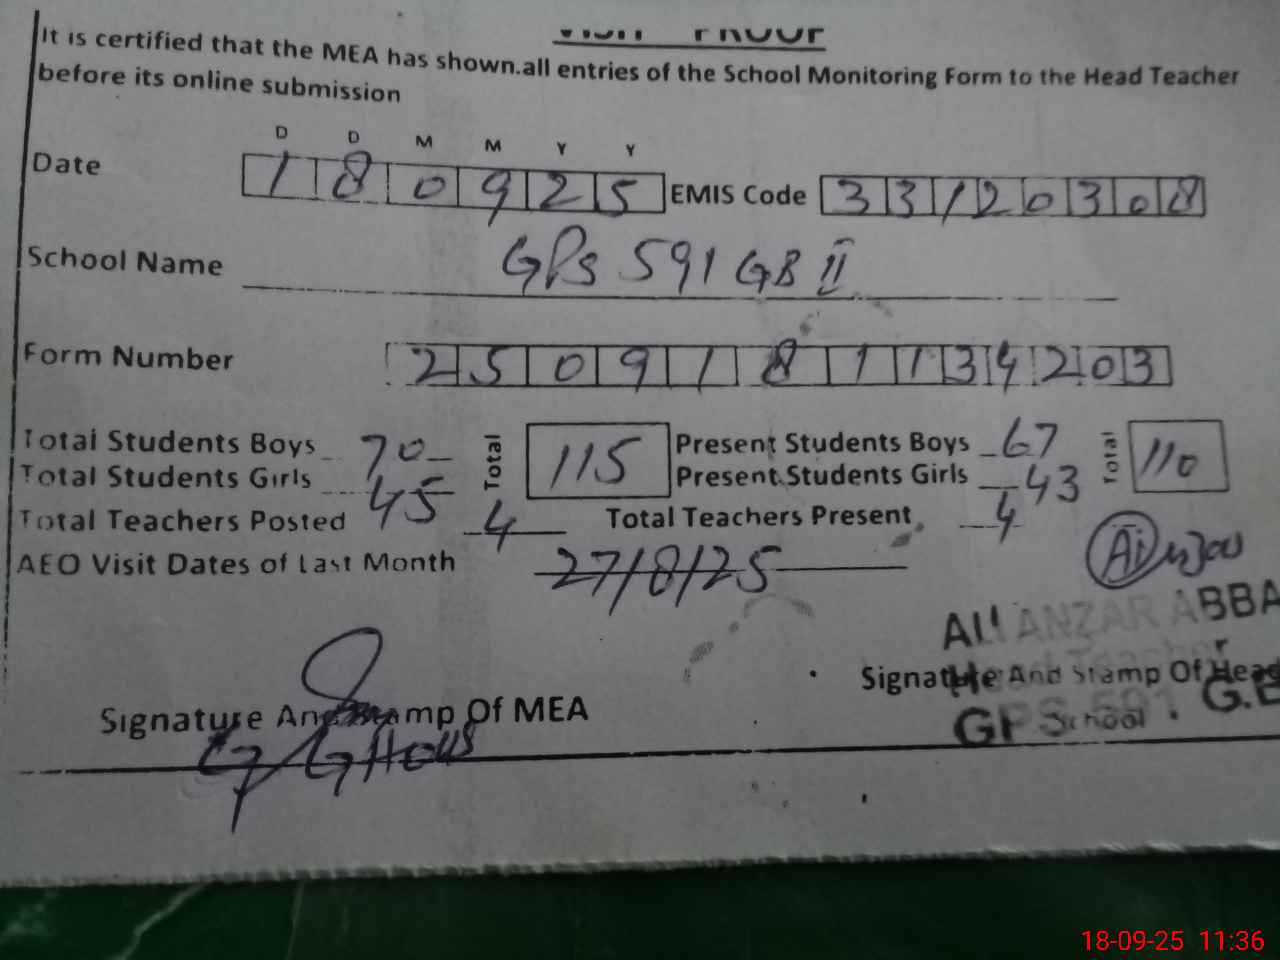 VISIT PROOF
It is certified that the MEA has shown.all entries of the School Monitoring Form to the Head Teacher
before its online submission
D D M M Y Y
Date 180925 EMIS Code 33120308
School Name GPS 591 GB II
Form Number 2509181134203
Total Students Boys 70 Total 115 Present Students Boys 67 Total 110
Total Students Girls 45 Present Students Girls 43
Total Teachers Posted 4 Total Teachers Present 4
AEO Visit Dates of Last Month 27/8/25
ALI ANZAR ABBA
Head Teacher
Signature And Stamp Of Head
Signature And Stamp Of MEA
GPS 591 G.B
School
G GHous
18-09-25 11:36